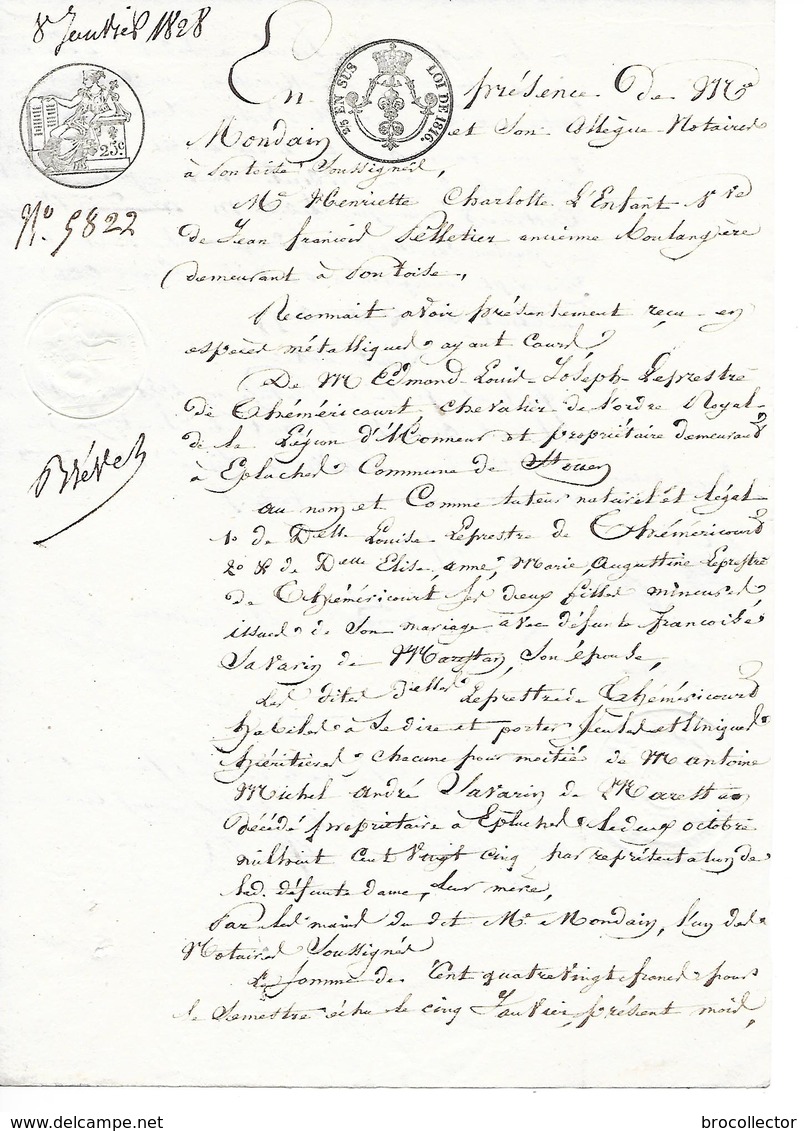 8 Janvier 1828
25 EN SUS
LOI DE 1816.
25c
No. 5822
Brevet
En présence de Me
Mondain et son Collègue Notaires
à Pontoise soussignés,
Me Henriette Charlotte L'Enfant Vve
de Jean françois Pelletier ancienne Boulangère
demeurant à Pontoise,
Reconnait avoir présentement reçu en
espèces métalliques ayant Cours,
De M Edmond Louis Joseph Leprestre
de Théméricourt, chevalier de l'ordre Royal
de la Légion d'Honneur et propriétaire demeurant
à Epluches Commune de St ouen
au nom et Comme tuteur naturel et légal
1o de Delle Louise Leprestre de Théméricourt
2o & de Delle Elise, anne, Marie, Augustine Leprestre
de Théméricourt ses deux filles mineures
issues de son mariage avec défunte françoise
Savarin de Marestan, son épouse,
Les dites Dlles Leprestre de Théméricourt
habiles à se dire et porter seules et Uniques
héritières, chacune pour moitié de M antoine
Michel andré Savarin de Marestan
décédé propriétaire à Epluches le deux octobre
mil huit Cent vingt cinq, par représentation de
lad. défunte dame, leur mère,
Par les mains du dit Me Mondain, l'un des
Notaires soussignés
La somme de Cent quatre vingt francs pour
le semestre échu le cinq Janvier, présent mois,
www.delcampe.net
brocollector